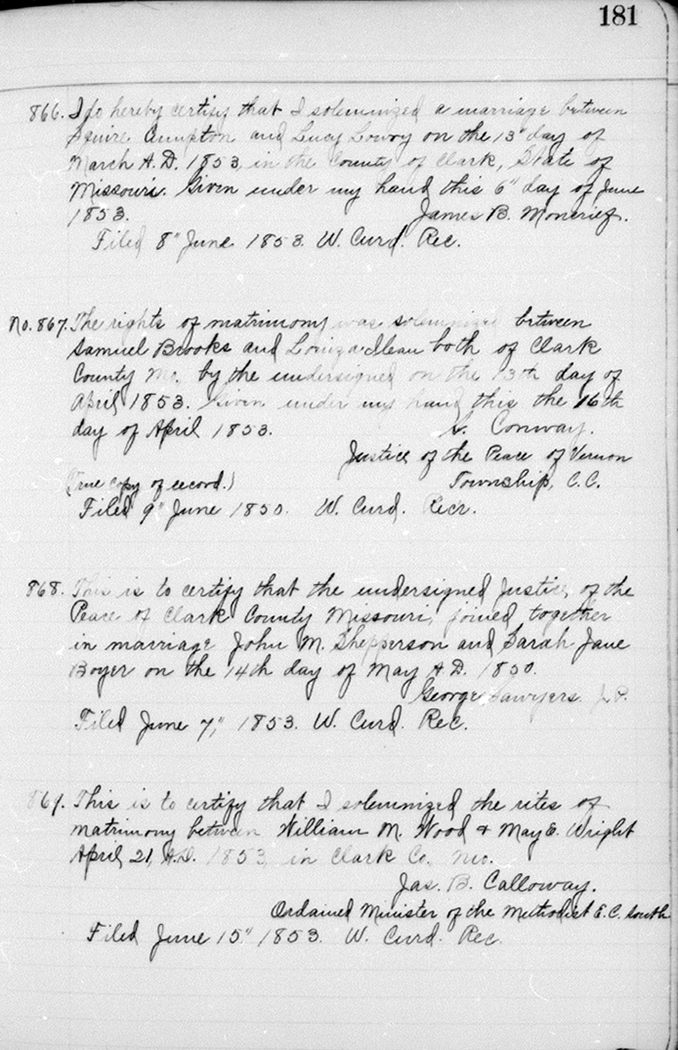 181
866. I do hereby certify that I solemnized a marriage between
Squire and Lucy Lowry on the 13" day of
March A.D. 1853, in the County of Clark, State of
Missouri. Given under my hand this 6" day of June
1853. James B. Moncrief.
Filed 8" June 1853. W. Curd. Rec.
No. 867. The rights of matrimony was solemnized between
Samuel Brooks and both of Clark
County Mo. by the undersigned on the 13th day of
April 1853. Given under my hand this the 16th
day of April 1853. Conway.
Justice of the Peace of Vernon
(True copy of record.) Township, C.C.
Filed 9" June 1850. W. Curd. Recr.
868. This is to certify that the undersigned Justice of the
Peace of Clark County Missouri, joined together
in marriage John M. Shepperson and Sarah Jane
Boyer on the 14th day of May A.D. 1850.
George Sawyers. J.P.
Filed June 7," 1853. W. Curd. Rec.
869. This is to certify that I solemnized the rites of
matrimony between William M. Wood & May E. Wright
April 21, A.D. 1853, in Clark Co. Mo.
Jas. B. Calloway.
Ordained Minister of the Methodist E.C. South
Filed June 15" 1853. W. Curd. Rec.